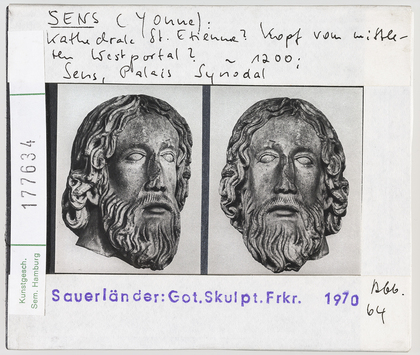 SENS (Yonne):
Kathedrale St. Etienne? Kopf vom mittle-
ren Westportal? ~ 1200;
Sens, Palais Synodal
177634
Kunstgesch.
Sem. Hamburg
Sauerländer: Got. Skulpt. Frkr. 1970
Abb.
64